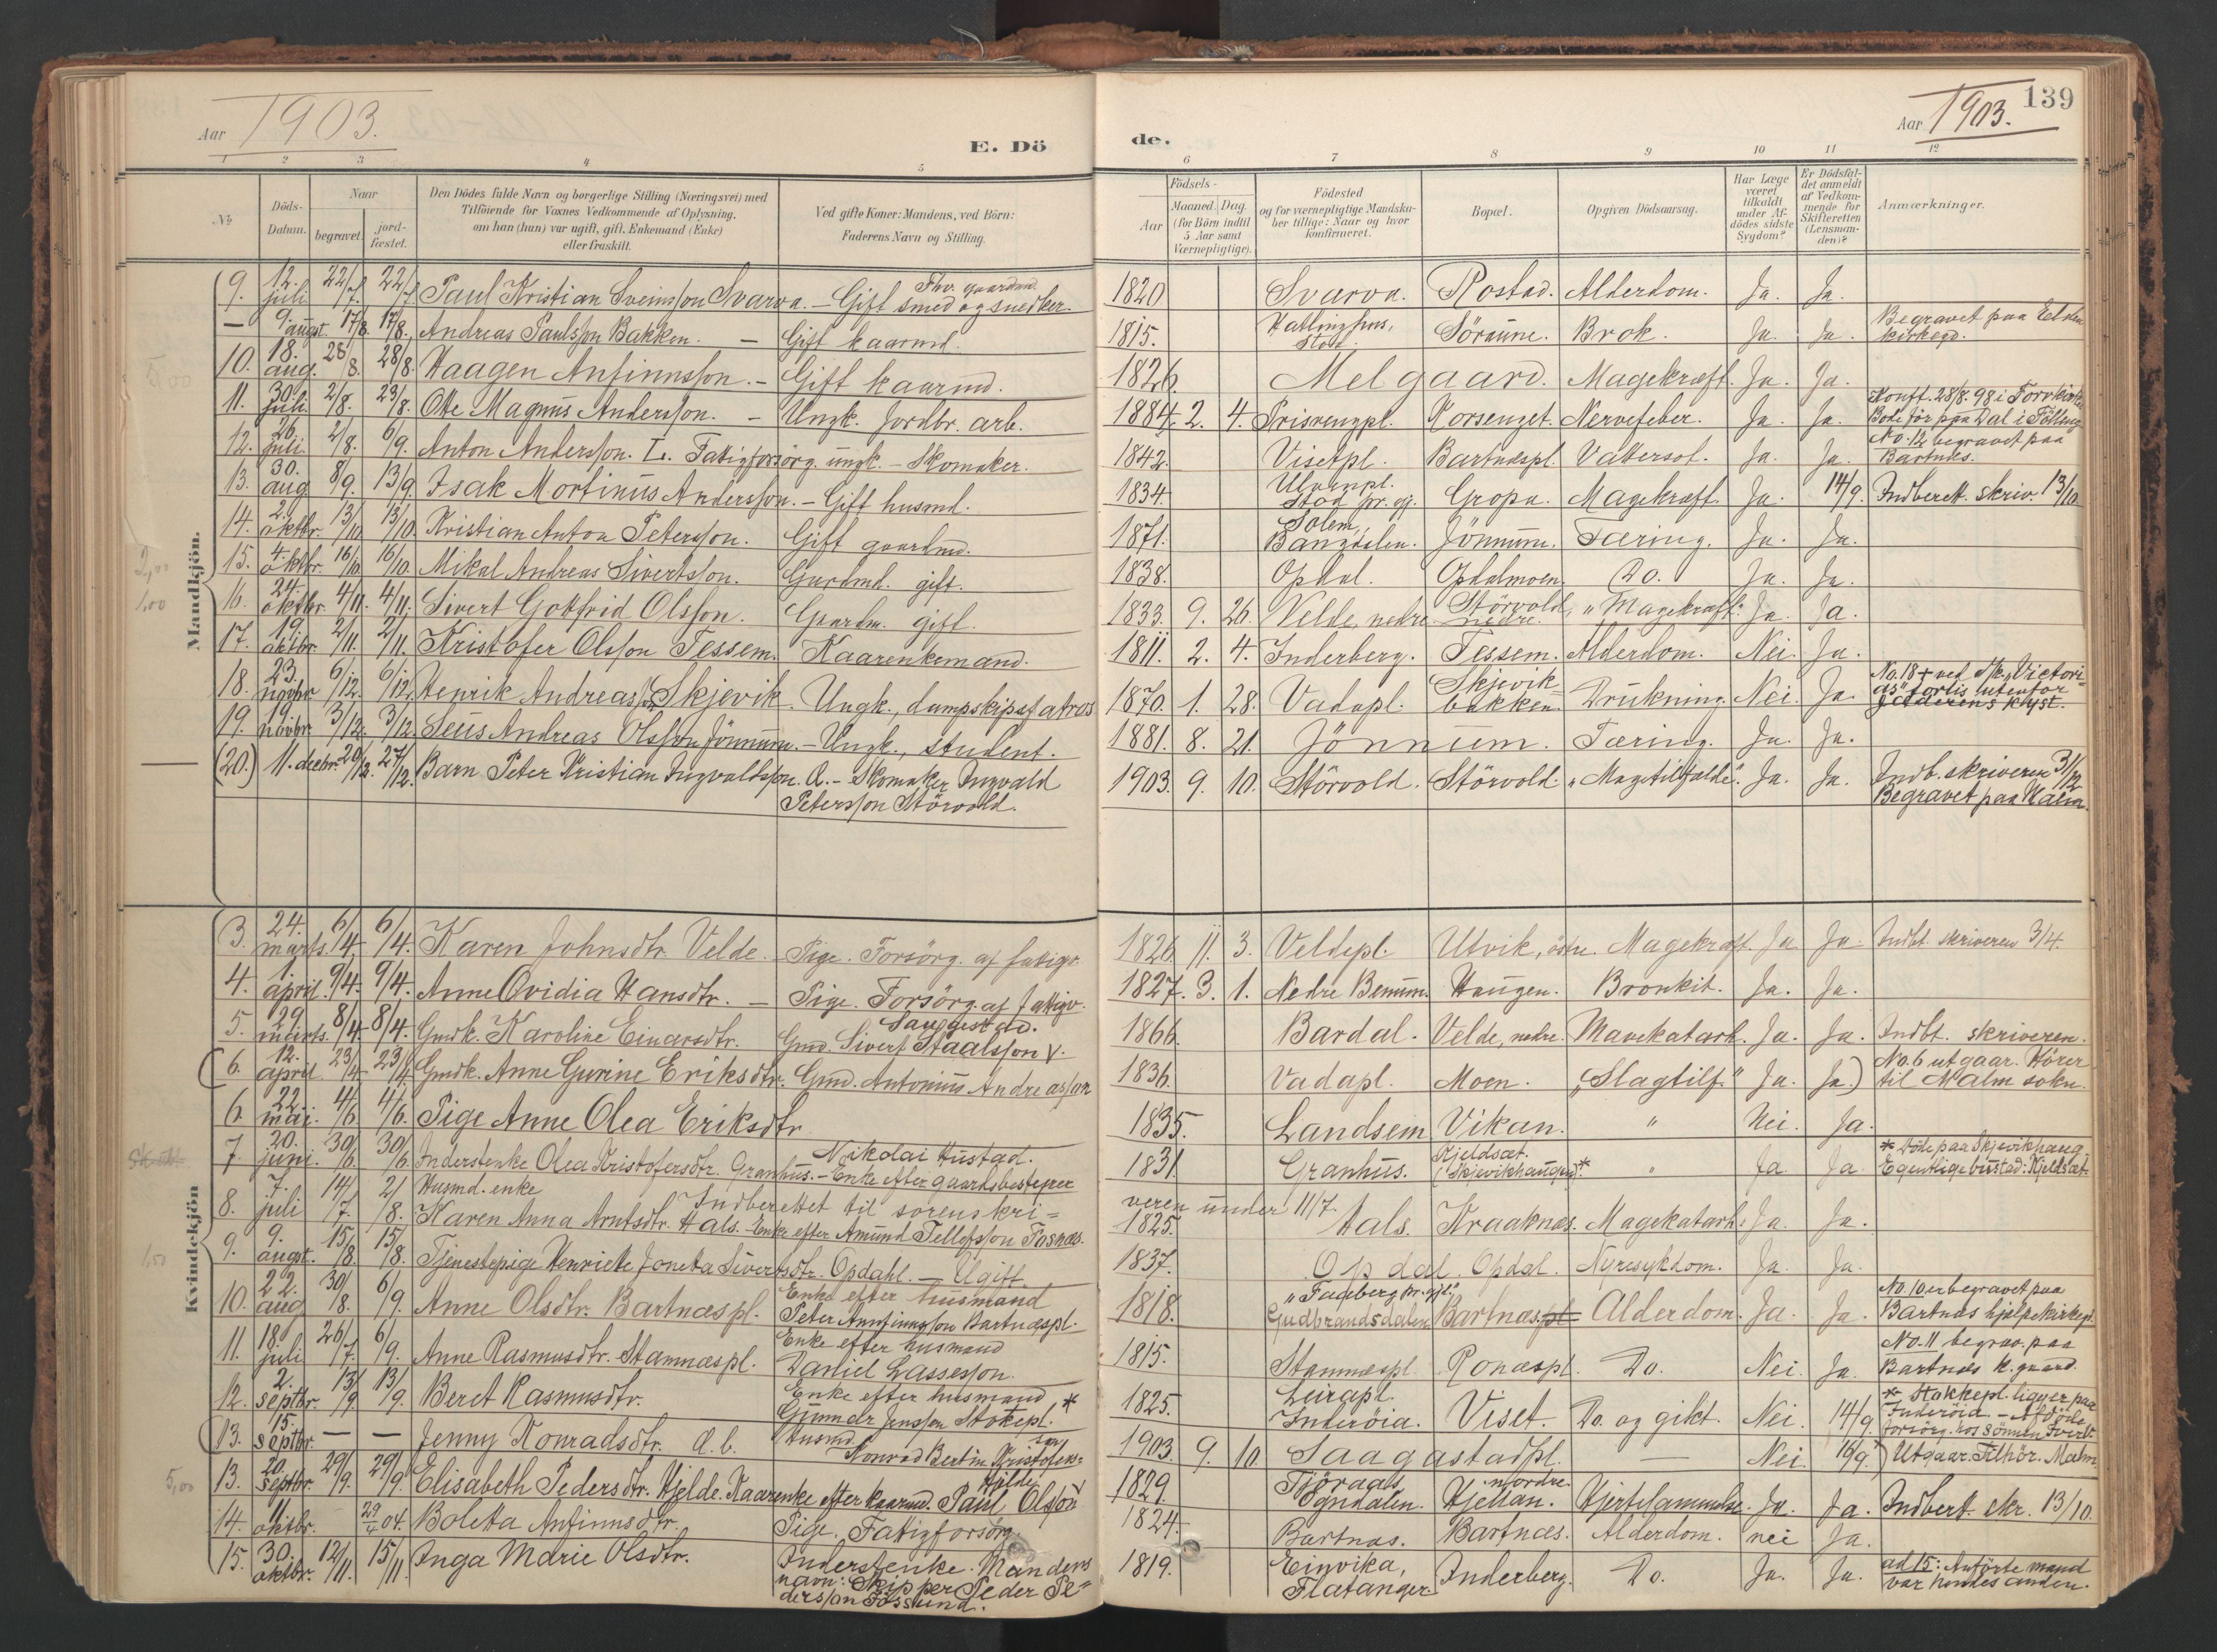 Aar 1903.
E. Dö
de.
Aar 1903.
139
1 2 3 4 5 6 7 8 9 10 11 12
No
Döds-Datum.
Naar begravet. jord-fæstet.
Den Dödes fulde Navn og borgerlige Stilling (Næringsvei) med Tilföiende for Voxnes Vedkommende af Oplysning, om han (hun) var ugift, gift, Enkemand (Enke) eller fraskilt.
Ved gifte Koner: Mandens, ved Börn: Faderens Navn og Stilling.
Födsels- Aar Maaned. Dag. (for Börn indtil 5 Aar samt Værnepligtige).
Födested og for værnepligtige Mandskaber tillige: Naar og hvor konfirmeret.
Bopæl.
Opgiven Dödsaarsag.
Har Læge været tilkaldt under Afdödes sidste Sygdom?
Er Dödsfaldet anmeldt af Vedkommende for Skifteretten (Lensmanden)?
Anmærkninger.
Mandkjön.
9. 12. juli 22/7. 22/7. Paul Kristian Sveinsson Svarva. – Gift smed og snedker. Fhv. gaardmd. 1820 Svarva. Rostad. Alderdom. Ja. Ja.
— 9. augst. 17/8. 17/8. Andreas Paulsson Bakken. – Gift kaarmd. 1815. Hallingshus, Stod. Söraune. Brok. Ja. Ja. Begravet paa Elden kirkegd.
10. 18. aug. 28/8. 28/8. Haagen Anfinnsson. – Gift kaarmd. 1826 Melgaard. Magekræft. Ja. Ja.
11. 30. juli 2/8. 23/8. Ole Magnus Andersson. – Ungk. Jordbr. arb. 1884. 2. 4. Trisvengpl. Korsenget. Nervefeber. Ja. Ja. Konft. 28/8. 98 i Forrkirke Bode för paa Dal i Fölling
12. 26. juli. 2/8. 6/9. Anton Andersson. L. Fatigforsörg. ungk. – Skomaker. 1842. Visetpl. Bartnæspl. Vattersot. Ja. Ja. No. 12 begravet paa Bartnes.
13. 30. aug 8/9. 13/9. Isak Mortinus Andersson. – Gift husmd. 1834. Stod pr. gj. Gropa. Magekræft. Ja. 14/9. Indberett. skriv. 13/10
14. 2. oktbr. 13/10 13/10. Kristian Anton Petersson. Gift gaardmd. 1871. Solem, Bangdalen. Jönnum. Tæring. Ja. Ja.
15. 4. oktbr. 16/10 16/10. Mikal Andreas Sivertsson. Gardmd. gift. 1838. Opdal. Opdalmoen Do. Ja. Ja.
16. 24. oktbr. 4/11. 4/11. Sivert Gotfrid Olsson. Gaardm. gift. 1833. 9. 26. Velde, nedre Störvold, nedre. "Magekræft". Ja. Ja.
17. 19. oktbr. 2/11. 2/11. Kristofer Olsson Tessem. Kaarenkemand. 1811. 2. 4. Inderberg. Tessem. Alderdom. Nei. Ja.
18. 23. novbr 6/12. 6/12. Henrik Andreasson Skjevik. Ungk., dampskipsmatros 1870. 1. 28. Vadapl. Skjevikbakken. Drukning. Nei. Ja. No. 18 † ved Sk. "Victorias" forlis utenfor Jæderens kyst.
19. 19. novbr 3/12. 3/12. Seüs Andreas Olsson Jönnum. – Ungk., student. 1881. 8. 21. Jönnum. Tæring. Ja. Ja.
(20.) 11. decbr. 20/12. 27/12. Barn Peter Kristian Ingvaldsson. Æ. – Skomaker Ingvald Petersson Störvold. 1903. 9. 10. Störvold. Störvold. "Magetilfælde". Ja. Ja. Indb. skriveren 31/12 Begravet paa Malm.
Kvindekjön
3. 24. marts. 6/4. 6/4. Karen Johnsdtr. Velde. Pige. Forsörg. af fatigv. 1826 11. 3. Veldepl. Utvik, östre. Magekræft. Ja Ja. Indbt. skriveren 3/4.
4. 1. april. 9/4. 9/4. Anne Ovidia Hansdtr. – Pige. Forsörg. af fatigv. 1827. 3. 1. Nedre Benum. Haugen. Bronkit. Ja. Ja.
5. 29. marts. 8/4. 8/4. Gmdk. Karoline Einarsdtr. Gmd. Sivert Staalsson V. Saugestad. 1866. Bardal. Velde, nedre. Mavekatarh. Ja. Ja. Indbt. skriveren.
(6. 12. april 23/4. 23/4. Gmdk. Anne Gurine Eriksdtr. Gmd. Antonius Andreasson 1836. Vadapl. Moen. "Slagtilf." Ja. Ja.) No. 6 utgaar. Hörer til Malm sokn.
6. 22. mai. 4/6. 4/6. Pige Anne Olea Eriksdtr. 1835. Landsem Vikan. " Nei. Ja.
7. 20. juni. 30/6. 30/6. Inderstenke Olea Kristofersdtr. Granhus. – Enke efter gaardsbestyrer Nikolai Hustad. 1831. Granhus. Kjeldsæt. (Skjevikhaugen)* " Ja. Ja. * Döde paa Skjevikhaug. Egentlige bustad: Kjeldsæt.
8. 7. juli 14/7. 2/8. Husmd. enke Karen Anna Arntsdtr. Hals. Enke efter Amund Tellefsson Fosnæs. Indberettet til sorenskriveren under 11/7. 1825. Hals. Kraaknæs. Magekatarh. Ja. Ja.
9. 9. augst. 15/8. 15/8. Tjenestepige Henriette Joneta Sivertsdtr. Opdahl. – Ugift. 1837. Opdal. Opdal. Nyresykdom. Ja. Ja.
10. 22. aug 30/8. 6/9. Anne Olsdtr. Bartnæspl. Enke efter husmand Peter Annfinnsson Bartnæspl. 1818. "Faaberg pr. gjl." Gudbrandsdalen. Bartnæspl. Alderdom. Ja. Ja. No. 10 er begravet paa Bartnæs hjelpekirkegd.
11. 18. juli 26/7. 6/9. Anne Rasmusdtr. Stamnæspl. Enke efter husmand Daniel Lassesson. 1815. Stamnæspl. Ronæspl. Do. Nei. Ja. No. 11 begrav. paa Bartnæs k. gaard.
12. 2. septbr. 13/9. 13/9. Beret Rasmusdtr. Enke efter husmand Gunnar Jensson Stokepl. * 1825. Leirapl. Inderöia. Viset. Do. og gikt. Nei. 14/9. * Stokkepl. ligger paa Inderöia.
(13. 15. septbr. — — Jenny Konradsdtr. d. b. Husmd. Konrad Bertin Kristofersson 1903 9. 10. Saagastadpl. — Nei. 16/9. ) Utgaar. Tilhör. Malm
13. 20. septbr. 29/9. 29/9 Elisabeth Pedersdtr. Hjelde. Kaarenke efter kaarmd. Paul Olsson Hjelde 1829. Ogndalen. Hjellan. nordre. Hjertelammelse. Ja. Ja. Indbert. skr. 13/10.
14. 11. oktbr. 29/4 04. Boletta Anfinnsdtr. Pige. Fatigforsörg. 1824. Bartnas. Bartnæs. Alderdom. nei Ja.
15. 30. oktbr. 12/11. 15/11. Inga Marie Olsdtr. Inderstenke. Mandens navn: Skipper Peder Pedersson Fossund. 1819. Eingvika, Flatanger. Inderberg. Do. Ja. Ja. ad 15: Anförte mand var hendes anden.
5,00
2,00
1,00
1,50
5,00